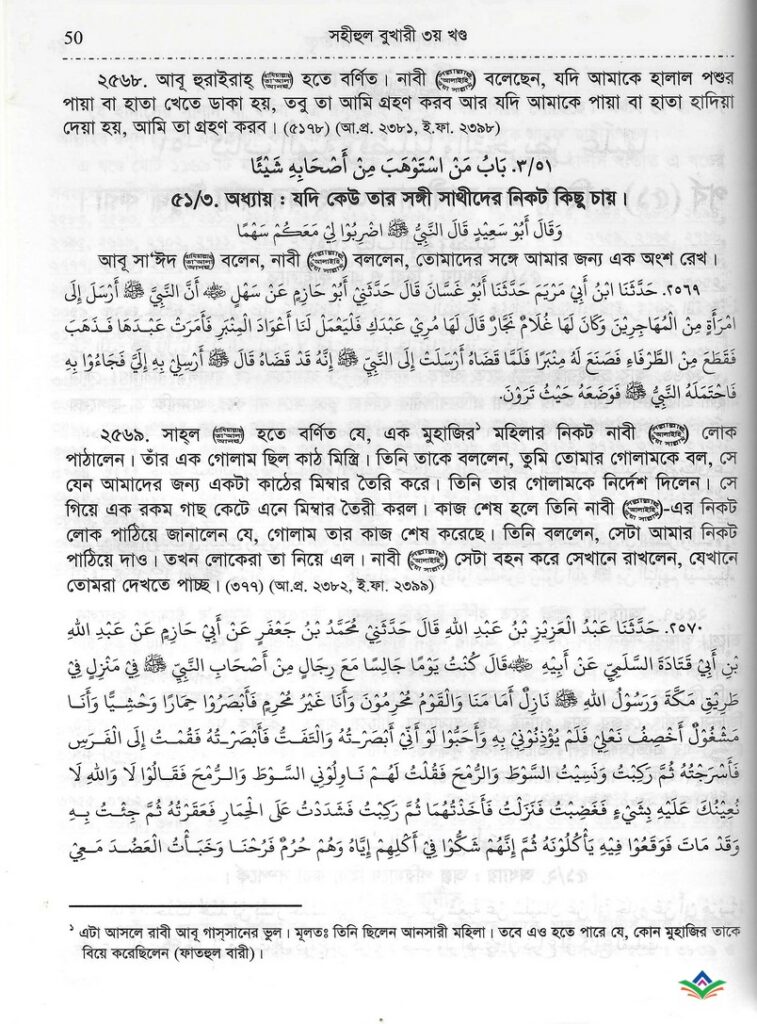 50
সহীহুল বুখারী ৩য় খণ্ড
২৫৬৮. আবূ হুরাইরাহ্ হতে বর্ণিত। নাবী বলেছেন, যদি আমাকে হালাল পশুর
পায়া বা হাতা খেতে ডাকা হয়, তবু তা আমি গ্রহণ করব আর যদি আমাকে পায়া বা হাতা হাদিয়া
দেয়া হয়, আমি তা গ্রহণ করব। (৫১৭৮) (আ.প্র. ২৩৮১, ই.ফা. ২৩৯৮)
৩/৫১. بَابُ مَنْ اسْتَوْهَبَ مِنْ أَصْحَابِهِ شَيْئًا
৫১/৩. অধ্যায় : যদি কেউ তার সঙ্গী সাথীদের নিকট কিছু চায়।
وَقَالَ أَبُو سَعِيدٍ قَالَ النَّبِيُّ ﷺ اضْرِبُوا لِي مَعَكُمْ سَهْمًا
আবূ সা‘ঈদ বলেন, নাবী বললেন, তোমাদের সঙ্গে আমার জন্য এক অংশ রেখ।
২৫৬৯. حَدَّثَنَا ابْنُ أَبِي مَرْيَمَ حَدَّثَنَا أَبُو غَسَّانَ قَالَ حَدَّثَنِي أَبُو حَازِمٍ عَنْ سَهْلٍ أَنَّ النَّبِيَّ ﷺ أَرْسَلَ إِلَى
امْرَأَةٍ مِنْ الْمُهَاجِرِينَ وَكَانَ لَهَا غُلَامٌ نَجَّارٌ قَالَ لَهَا مُرِي عَبْدَكِ فَلْيَعْمَلْ لَنَا أَعْوَادَ الْمِنْبَرِ فَأَمَرَتْ عَبْدَهَا فَذَهَبَ
فَقَطَعَ مِنْ الطَّرْفَاءِ فَصَنَعَ لَهُ مِنْبَرًا فَلَمَّا قَضَاهُ أَرْسَلَتْ إِلَى النَّبِيِّ ﷺ إِنَّهُ قَدْ قَضَاهُ قَالَ ﷺ أَرْسِلِي بِهِ إِلَيَّ فَجَاءُوا بِهِ
فَاحْتَمَلَهُ النَّبِيُّ ﷺ فَوَضَعَهُ حَيْثُ تَرَوْنَ.
২৫৬৯. সাহ্‌ল হতে বর্ণিত যে, এক মুহাজির১ মহিলার নিকট নাবী লোক
পাঠালেন। তাঁর এক গোলাম ছিল কাঠ মিস্ত্রি। তিনি তাকে বললেন, তুমি তোমার গোলামকে বল, সে
যেন আমাদের জন্য একটা কাঠের মিম্বার তৈরি করে। তিনি তার গোলামকে নির্দেশ দিলেন। সে
গিয়ে এক রকম গাছ কেটে এনে মিম্বার তৈরী করল। কাজ শেষ হলে তিনি নাবী -এর নিকট
লোক পাঠিয়ে জানালেন যে, গোলাম তার কাজ শেষ করেছে। তিনি বললেন, সেটা আমার নিকট
পাঠিয়ে দাও। তখন লোকেরা তা নিয়ে এল। নাবী সেটা বহন করে সেখানে রাখলেন, যেখানে
তোমরা দেখতে পাচ্ছ। (৩৭৭) (আ.প্র. ২৩৮২, ই.ফা. ২৩৯৯)
২৫৭০. حَدَّثَنَا عَبْدُ الْعَزِيزِ بْنُ عَبْدِ اللهِ قَالَ حَدَّثَنِي مُحَمَّدُ بْنُ جَعْفَرٍ عَنْ أَبِي حَازِمٍ عَنْ عَبْدِ اللهِ
بْنِ أَبِي قَتَادَةَ السَّلَمِيِّ عَنْ أَبِيهِ قَالَ كُنْتُ يَوْمًا جَالِسًا مَعَ رِجَالٍ مِنْ أَصْحَابِ النَّبِيِّ ﷺ فِي مَنْزِلٍ فِي
طَرِيقِ مَكَّةَ وَرَسُوْلُ اللهِ ﷺ نَازِلٌ أَمَامَنَا وَالْقَوْمُ مُحْرِمُونَ وَأَنَا غَيْرُ مُحْرِمٍ فَأَبْصَرُوا حِمَارًا وَحْشِيًّا وَأَنَا
مَشْغُوْلٌ أَخْصِفُ نَعْلِي فَلَمْ يُؤْذِنُوْنِي بِهِ وَأَحَبُّوا لَوْ أَنِّي أَبْصَرْتُهُ وَالْتَفَتُّ فَأَبْصَرْتُهُ فَقُمْتُ إِلَى الْفَرَسِ
فَأَسْرَجْتُهُ ثُمَّ رَكِبْتُ وَنَسِيْتُ السَّوْطَ وَالرُّمْحَ فَقُلْتُ لَهُمْ نَاوِلُونِي السَّوْطَ وَالرُّمْحَ فَقَالُوْا لَا وَاللهِ لَا
نُعِيْنُكَ عَلَيْهِ بِشَيْءٍ فَغَضِبْتُ فَنَزَلْتُ فَأَخَذْتُهُمَا ثُمَّ رَكِبْتُ فَشَدَدْتُ عَلَى الْحِمَارِ فَعَقَرْتُهُ ثُمَّ جِئْتُ بِهِ
وَقَدْ مَاتَ فَوَقَعُوْا فِيْهِ يَأْكُلُوْنَهُ ثُمَّ إِنَّهُمْ شَكُّوْا فِيْ أَكْلِهِمْ إِيَّاهُ وَهُمْ حُرُمٌ فَرُحْنَا وَخَبَأْتُ الْعَضُدَ مَعِيْ
১ এটা আসলে রাবী আবূ গাস্‌সানের ভুল। মূলতঃ তিনি ছিলেন আনসারী মহিলা। তবে এও হতে পারে যে, কোন মুহাজির তাকে
বিয়ে করেছিলেন (ফাতহুল বারী)।